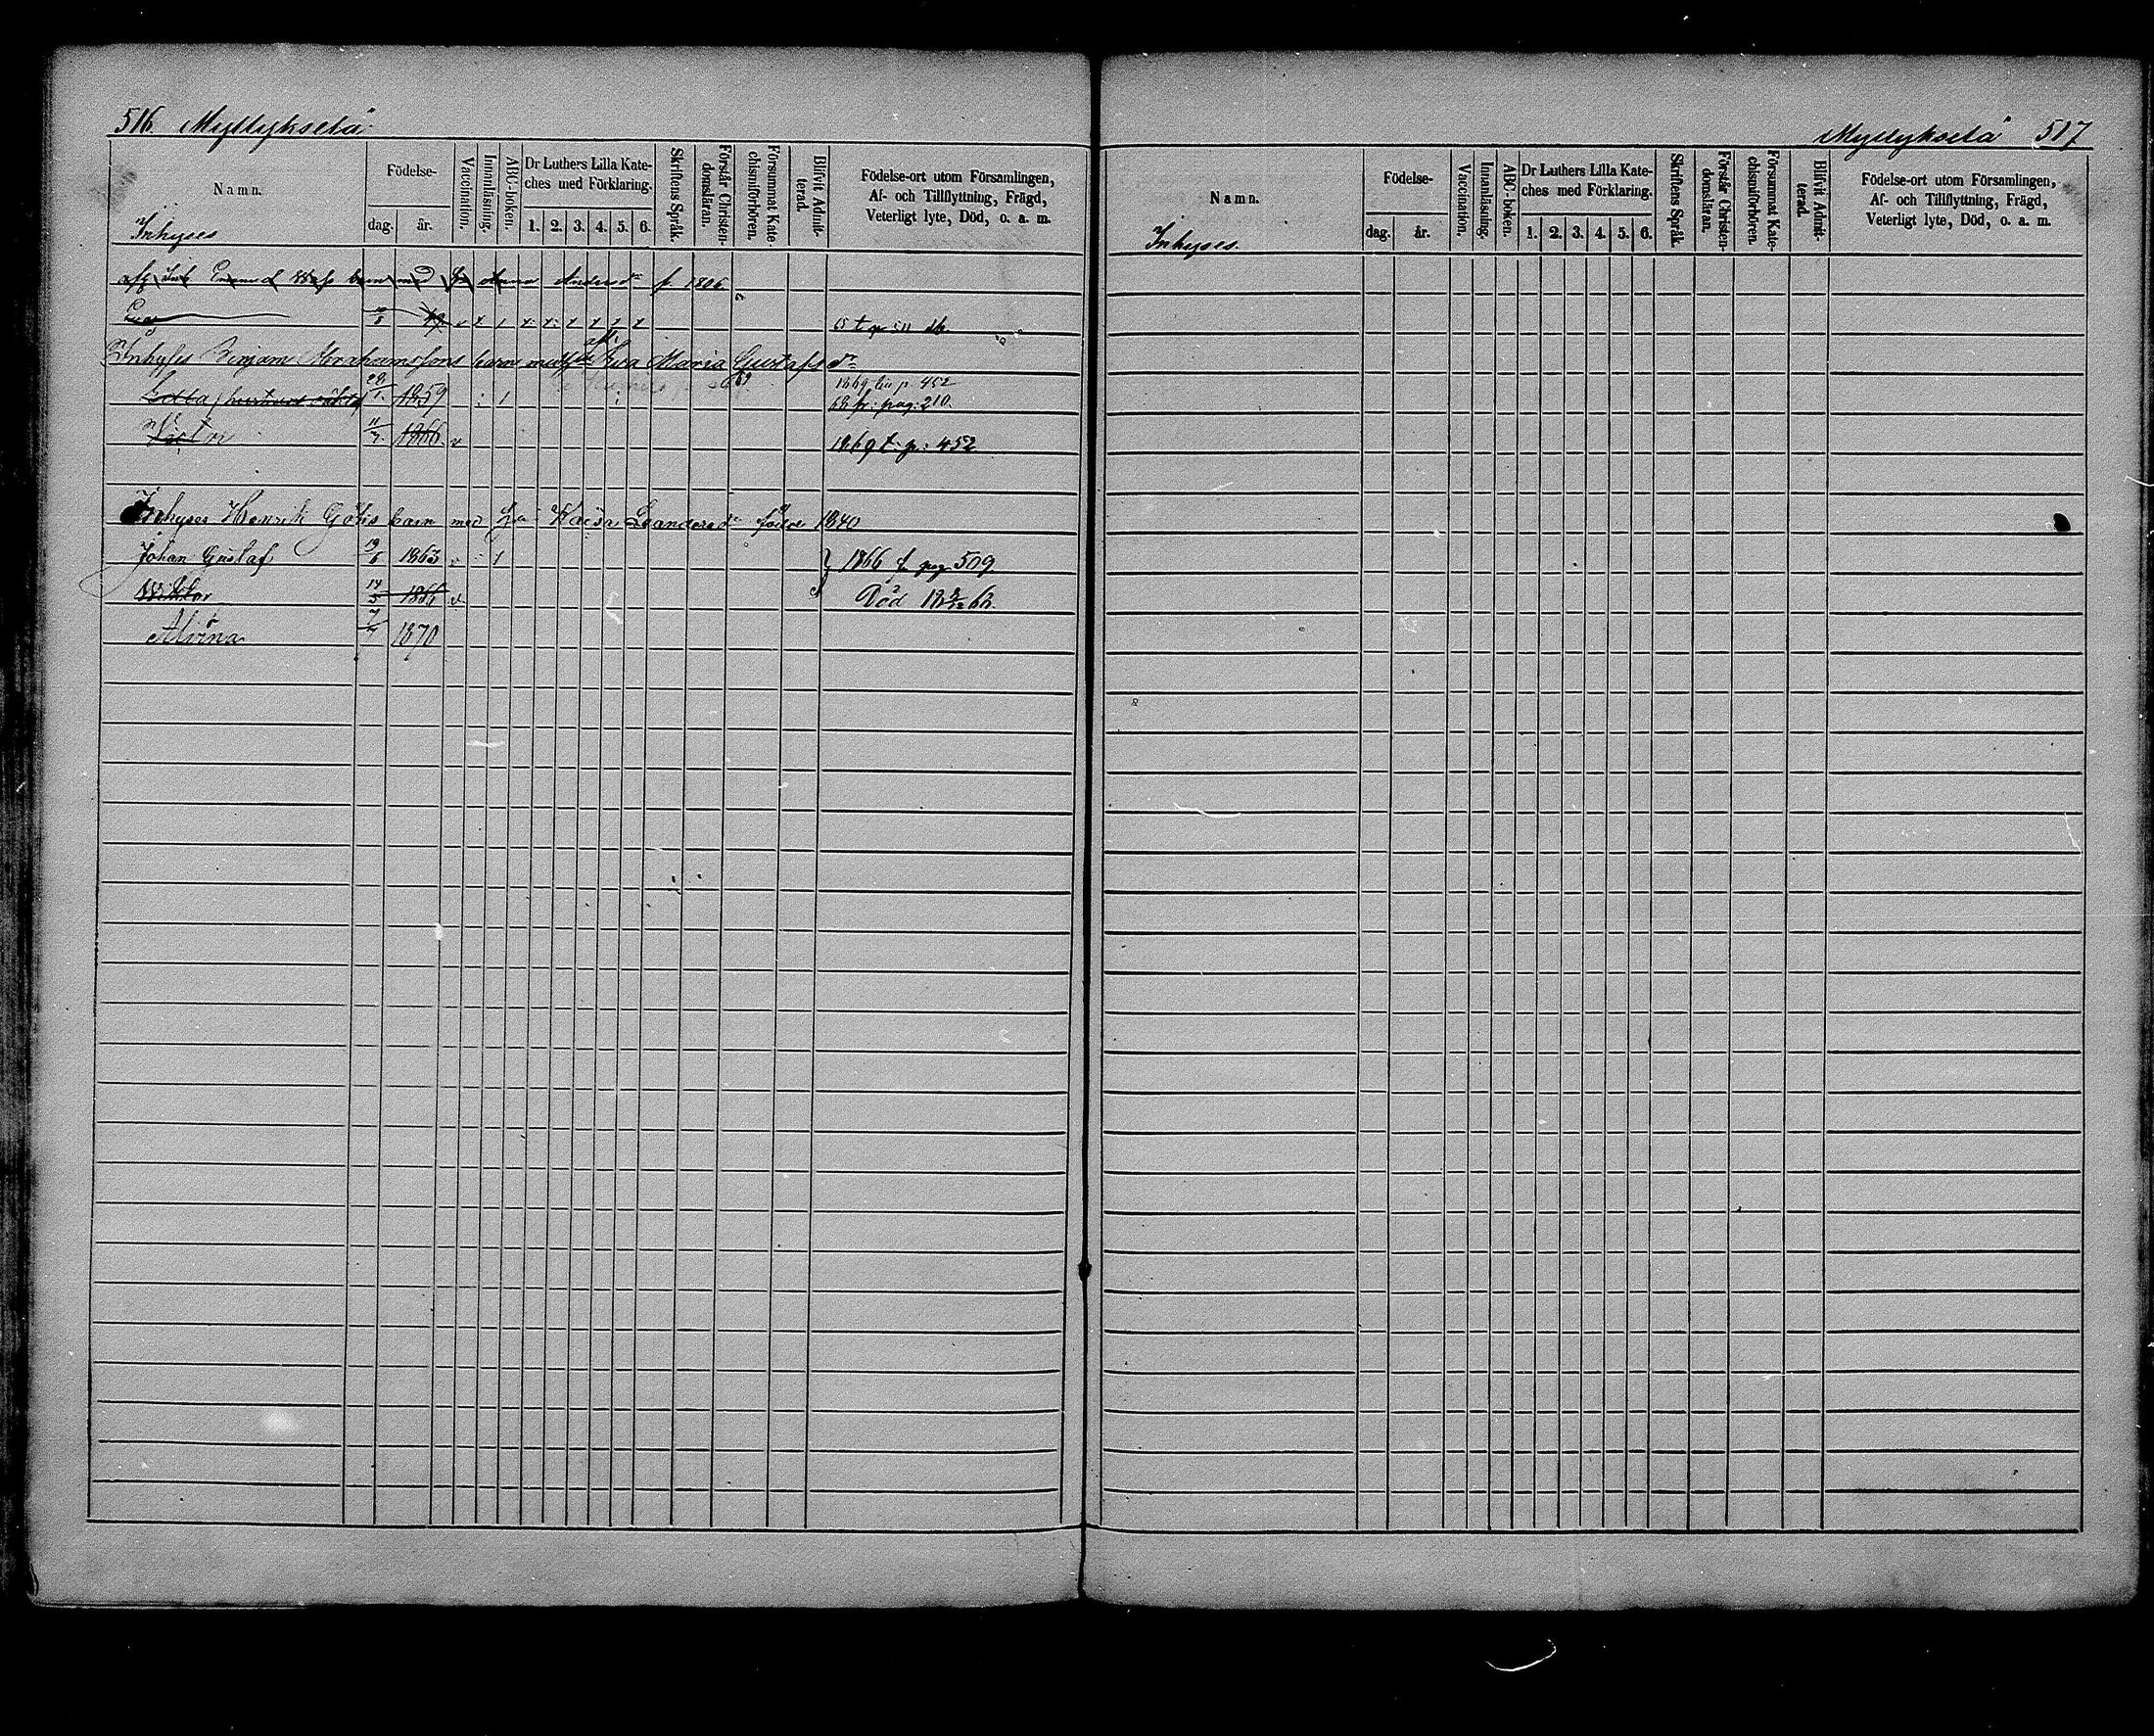 516. Myllykselä
Namn.
Födelse-
dag. år.
Vaccination.
Innanläsning.
ABC-boken.
Dr Luthers Lilla Kate-
ches med Förklaring.
1. 2. 3. 4. 5. 6.
Skriftens Språk.
Förstår Christen-
domsläran.
Försummat Kate-
chismiförhören.
Blifvit Admit-
terad.
Födelse-ort utom Församlingen,
Af- och Tillflyttning, Frägd,
Veterligt lyte, Död, o. a. m.
Inhyses
afs Inh barn med Anna Andersdr f. 1806
Eva 49 65 t. p:
Inhyses Benjam Abrahamssons barn med Eva Maria Gustafsdr
1869 p. 452
Edla 28/1 1859 68 fr: pag: 210.
Victor 11/7 1866. v 1869 t. p: 452
Inhyses Henrik Götis barn med h:u Kaisa Leandersdr född 1840
Johan Gustaf 19/6 1863 v 1866 fr pag 509
Wiktor 14/5 1866 v Död 18 8/12 68.
Alvina 7/7 1870
Myllykselä 517
Namn.
Födelse-
dag. år.
Vaccination.
Innanläsning.
ABC-boken.
Dr Luthers Lilla Kate-
ches med Förklaring.
1. 2. 3. 4. 5. 6.
Skriftens Språk.
Förstår Christen-
domsläran.
Försummat Kate-
chismiförhören.
Blifvit Admit-
terad.
Födelse-ort utom Församlingen,
Af- och Tillflyttning, Frägd,
Veterligt lyte, Död, o. a. m.
Inhyses.